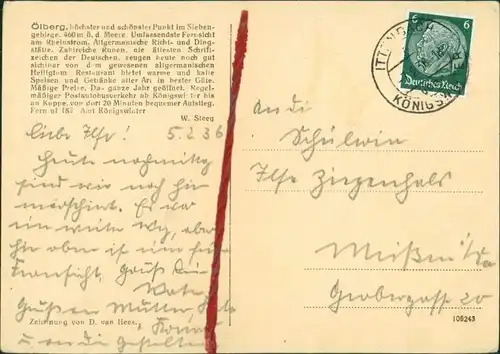 Ölberg, höchster und schönster Punkt im Sieben-
gebirge. 460 m ü. d. Meere. Umfassendste Fernsicht
am Rheinstrom. Altgermanische Richt- und Ding-
stätte. Zahlreiche Runen, die ältesten Schrift-
zeichen der Deutschen, zeugen heute noch gut
sichtbar von dem gewesenen altgermanischen
Heiligtum. Restaurant bietet warme und kalte
Speisen und Getränke aller Art in bester Güte.
Mäßige Preise. Das ganze Jahr geöffnet. Regel-
mäßiger Postautobusverkehr ab Königswinter bis
an Kuppe, von dort 20 Minuten bequemer Aufstieg.
Fernruf 187 Amt Königswinter
W. Steeg
Liebe Ilse! 5.2.36
Heute nachmittag
sind wir noch hier
marschiert. Es war
ein weiter Weg, aber
hier oben ist eine
Fernsicht. Gruß
Vater
Grüßen Mutter,
Zeichnung von D. van Hees.
6 6
Deutsches Reich
KÖNIGSW
An die
Schülerin
Ilse Ziegenhals
Meißen
Grabergasse 20
109243